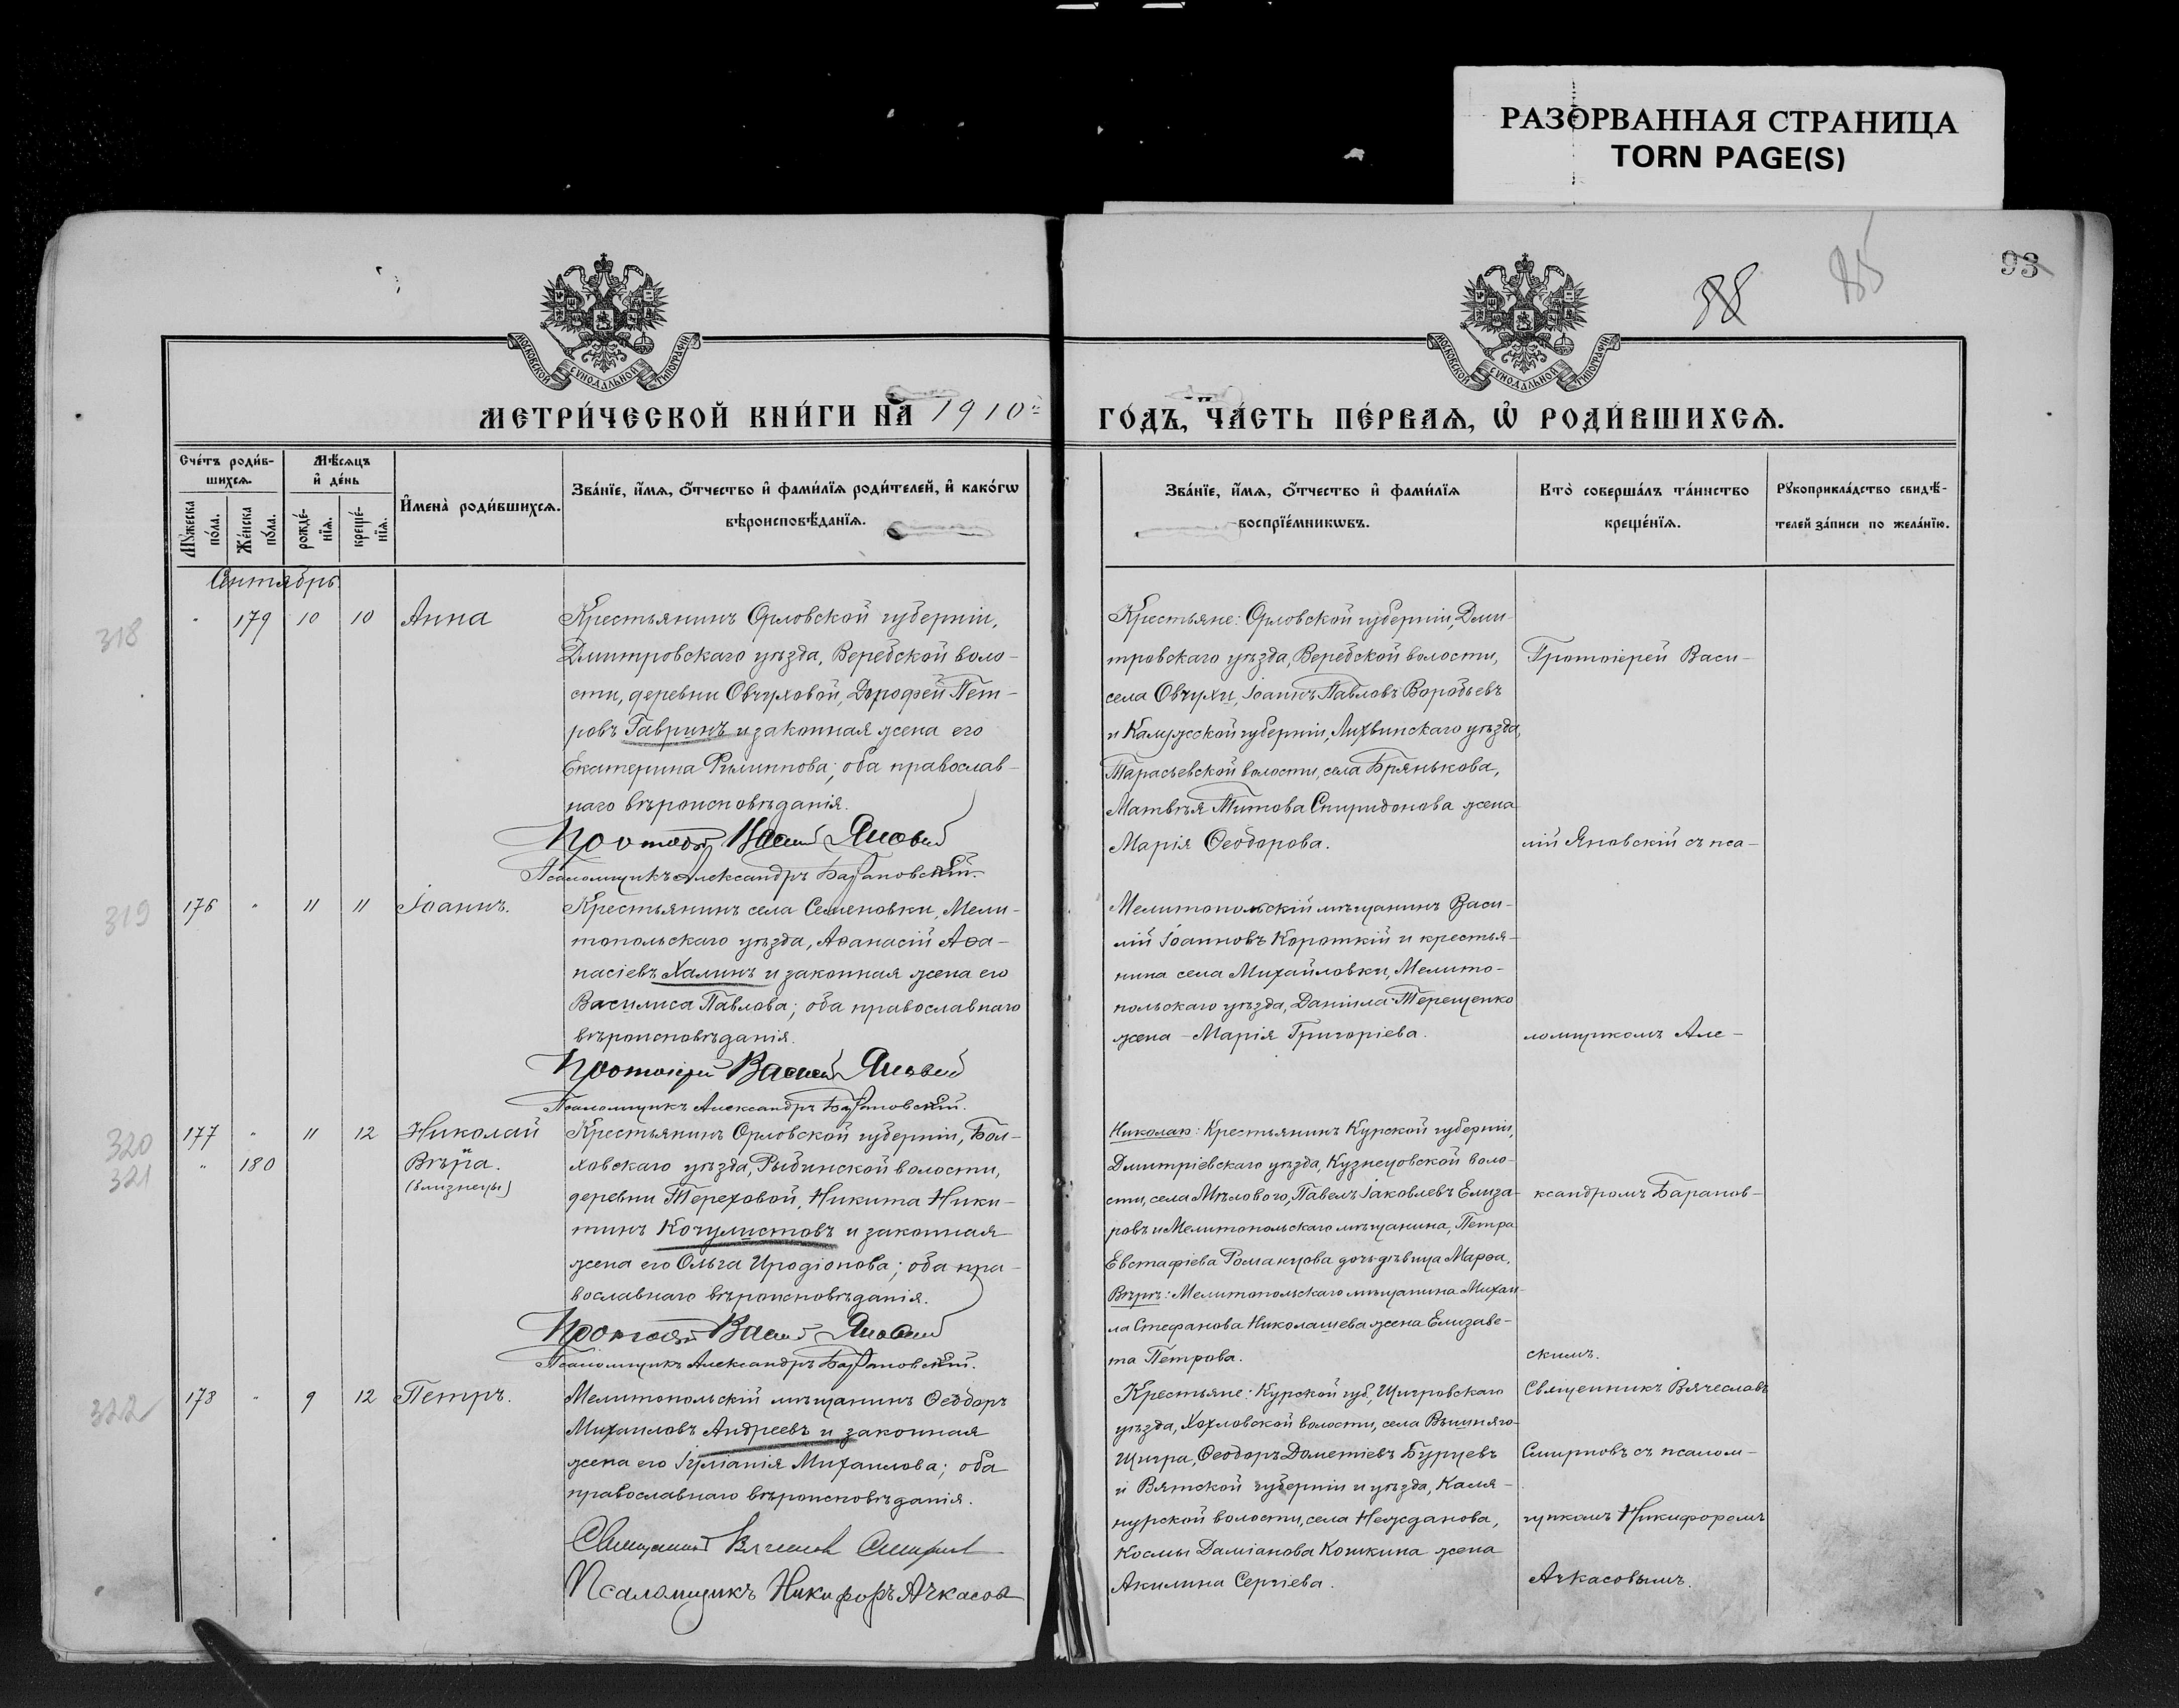 РАЗОРВАННАЯ СТРАНИЦА
TORN PAGE(S)
88
85
93
МОСКОВСКОЙ СѴНОДАЛЬНОЙ ТИПОГРАФІИ
МОСКОВСКОЙ СѴНОДАЛЬНОЙ ТИПОГРАФІИ
МЕТРИ́ЧЕСКОЙ КНИ́ГИ НА 1910й
ГО́ДЪ, ЧА́СТЬ ПЕ́РВАѦ, Ѡ҆ РОДИ́ВШИХСѦ.
Сче́тъ роди́в-
шихсѧ.
Мꙋ́жеска по́ла.
Же́нска по́ла.
Мѣ́сѧцъ
и҆ де́нь
рожде́-
нїѧ.
креще́-
нїѧ.
И҆мена̀ роди́вшихсѧ.
Зва́нїе, и҆́мѧ, ѻ҆́тчество и҆ фами́лїѧ роди́телей, и҆ како́гѡ
вѣроисповѣ́данїѧ.
Зва́нїе, и҆́мѧ, ѻ҆́тчество и҆ фами́лїѧ
воспрїе́мникѡвъ.
Кто̀ соверша́лъ та́инство
креще́нїѧ.
Рꙋкоприкла́дство свидѣ́-
телей за́писи по жела́нїю.
Октябрь.
318
" 179 10 10 Анна
Крестьянинъ Орловской губерніи,
Дмитровскаго уѣзда, Веребской воло-
сти, деревни Овчуховой, Дорофей Пет-
ровъ Гавринъ и законная жена его
Екатерина Филиппова; оба православ-
наго вѣроисповѣданія.
Протоіерей Василій Яновскій
Псаломщикъ Александръ Барановскій.
Крестьяне: Орловской губерніи, Дми-
тровскаго уѣзда, Веребской волости,
села Овчухи, Іоаннъ Павловъ Воробьевъ
и Калужской губерніи, Лихвинскаго уѣзда,
Тарасьевской волости, села Брянькова,
Матвѣя Титова Спиридонова жена
Марія Ѳеодорова.
Протоіерей Васи-
лій Яновскій съ пса-
319
176 " 11 11 Іоаннъ.
Крестьянинъ села Семеновки, Мели-
топольскаго уѣзда, Аѳанасій Аѳа-
насіевъ Халинъ и законная жена его
Василиса Павлова; оба православнаго
вѣроисповѣданія.
Протоіерей Василій Яновскій
Псаломщикъ Александръ Барановскій.
Мелитопольскій мѣщанинъ Васи-
лій Іоанновъ Короткій и крестья-
нина села Михайловки, Мелито-
польскаго уѣзда, Даніила Терещенко
жена - Марія Григоріева.
ломщикомъ Але-
320
177 " 11 12 Николай
321
" 180 Вѣра.
(близнецы)
Крестьянинъ Орловской губерніи, Бол-
ховскаго уѣзда, Рыбинской волости,
деревни Тереховой, Никита Ники-
тинъ Кочулистовъ и законная
жена его Ольга Иродіонова; оба пра-
вославнаго вѣроисповѣданія.
Протоіерей Василій Яновскій
Псаломщикъ Александръ Барановскій.
Николаю: Крестьянинъ Курской губерніи,
Дмитріевскаго уѣзда, Кузнецовской воло-
сти, села Мѣлового, Павелъ Іаковлевъ Елиза-
ровъ и Мелитопольскаго мѣщанина, Петра
Евстафіева Романцова дочь дѣвица Марѳа,
Вѣрѣ: Мелитопольскаго мѣщанина Михаи-
ла Стефанова Николашева жена Елизаве-
та Петрова.
ксандромъ Баранов-
скимъ.
322
178 " 9 12 Петръ.
Мелитопольскій мѣщанинъ Ѳеодоръ
Михаиловъ Андреевъ и законная
жена его Іуліанія Михаилова; оба
православнаго вѣроисповѣданія.
Священникъ Вячеславъ Смирновъ
Псаломщикъ Никифоръ Ачкасовъ
Крестьяне: Курской губ., Щигровскаго
уѣзда, Хохловской волости, села Вышняго-
Щигра, Ѳеодоръ Дометіевъ Бурцевъ
и Вятской губерніи и уѣзда, Каля-
нурской волости, села Нежданова,
Космы Даміанова Кошкина жена
Акилина Сергіева.
Священникъ Вячеславъ
Смирновъ съ псалом-
щикомъ Никифоромъ
Ачкасовымъ.